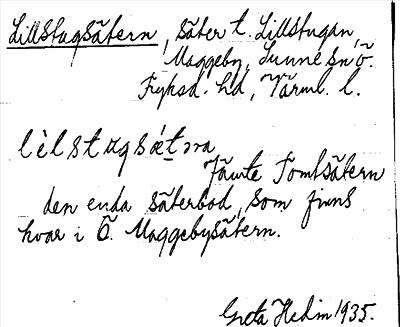 Lillstugsätern, säter t. Lillstugan,
Maggeby, Sunne sn ö.
Fryksd. hd, Värml. l.
lèlstugsætra
Jämte Tomtsätern
den enda säterbod, som finns
kvar i Ö. Maggebysätern.
Greta Hedin 1935.